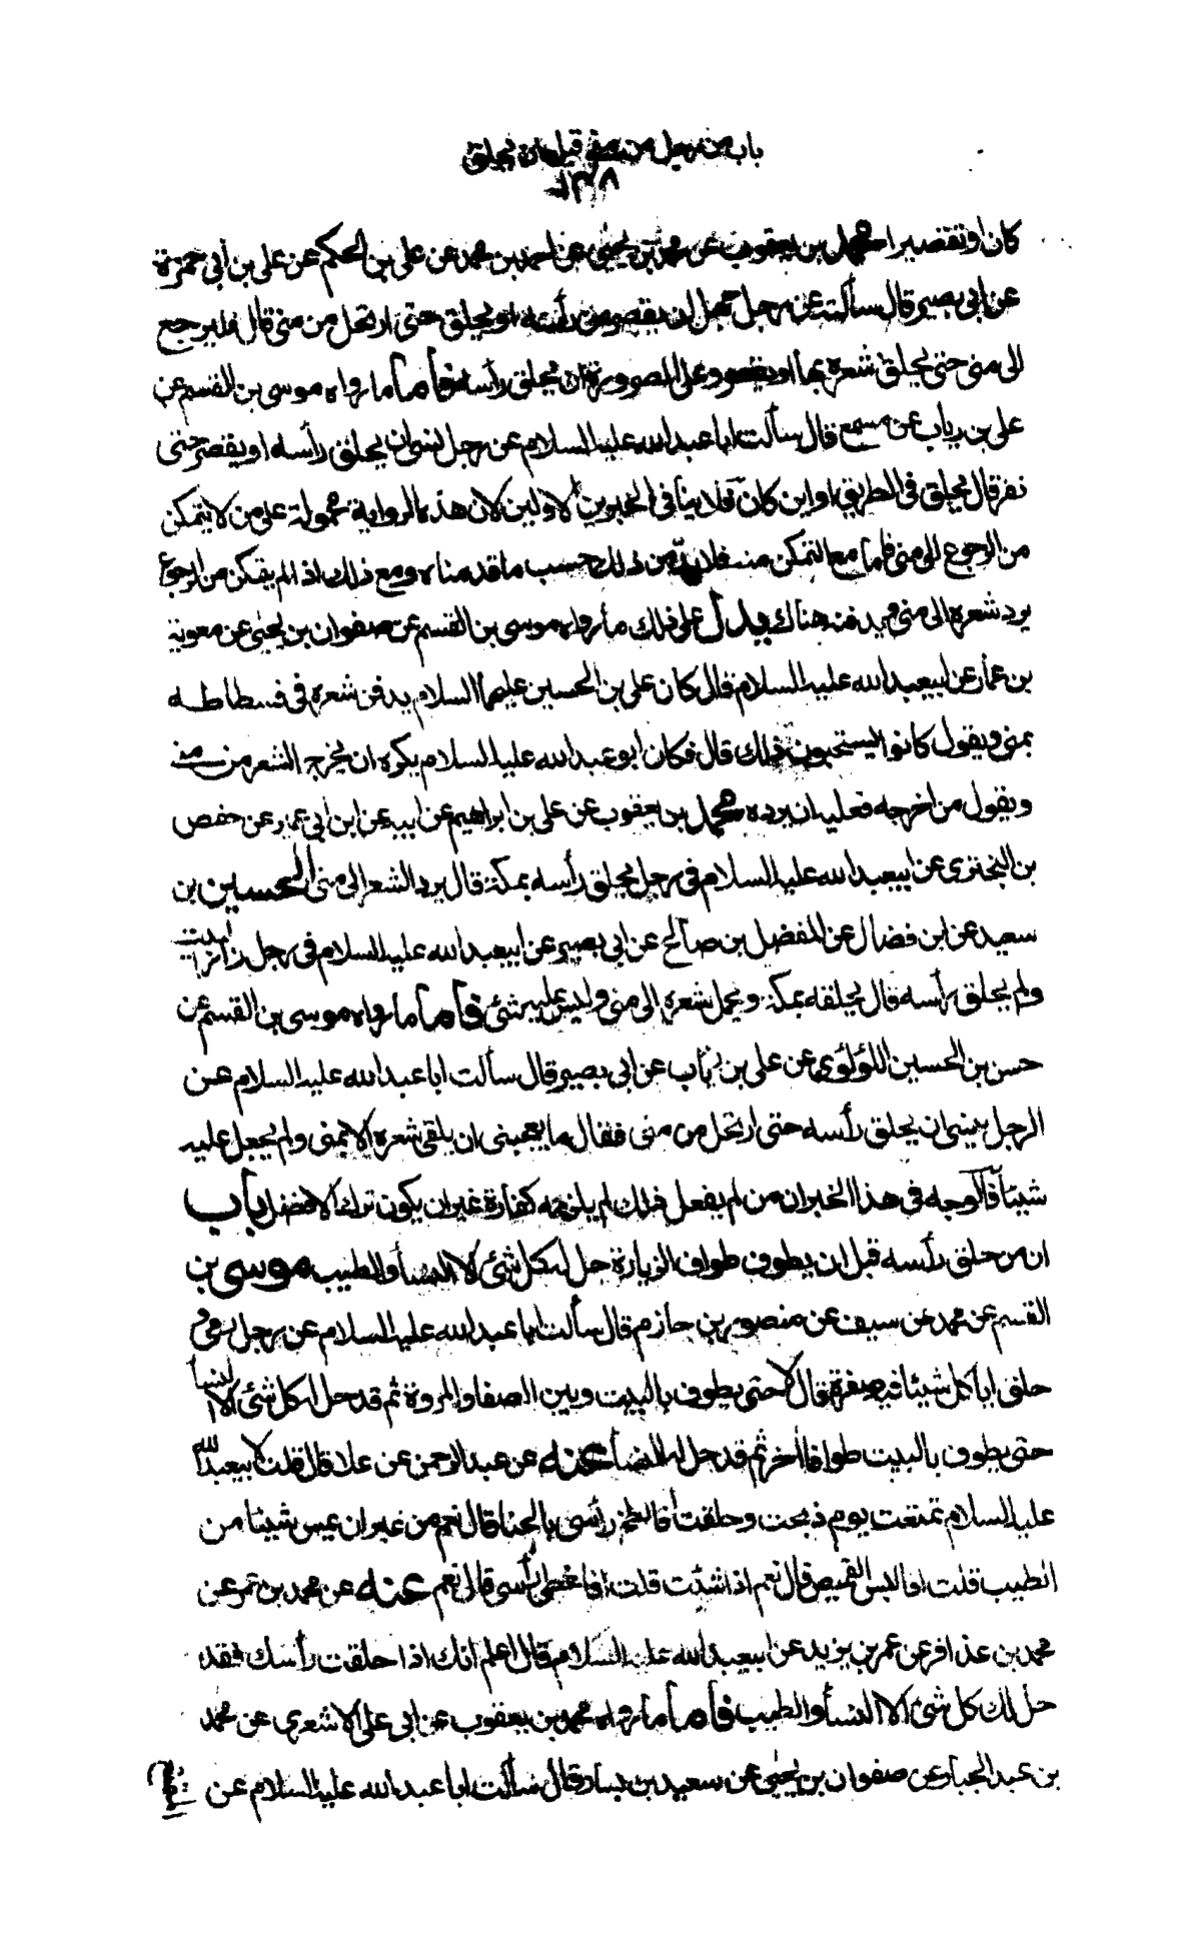 باب من رحيل من منى قبل ان يحلق
١٣٨
كان او تقصيرا محمد بن يعقوب عن محمد بن يحيى عن احمد بن محمد عن على بن الحكم عن على بن ابى حمزة
عن ابى بصير قال سألته عن رجل جهل ان يقصر من رأسه او يحلق حتى ارتحل من منى قال فليرجع
الى منى حتى يحلق شعره بها او يقصر وعلى الصرورة ان يحلق رأسه فاما ما رواه موسى بن القسم عن
على بن رياب عن مسمع قال سألت ابا عبد الله عليه السلام عن رجل نسى ان يحلق رأسه او يقصر حتى
نفر قال يحلق فى الطريق او اين كان فلا ينافى الخبرين الاولين لان هذه الرواية محمولة على من لا يتمكن
من الرجوع الى منى فاما مع التمكن منه فلا بد من ذلك حسب ما قدمناه ومع ذلك اذا لم يتمكن من الرجوع
يرد شعره الى منى فيدفنه هناك يدل على ذلك ما رواه موسى بن القسم عن صفوان بن يحيى عن معوية
بن عمار عن ابيعبد الله عليه السلام قال كان على بن الحسين عليهما السلام يدفن شعره فى فسطاطه
بمنى ويقول كانوا يستحبون ذلك قال فكان ابو عبد الله عليه السلام يكره ان يخرج الشعر من منى
ويقول من اخرجه فعليه ان يرده محمد بن يعقوب عن على بن ابراهيم عن ابيه عن ابن ابى عمير عن حفص
بن البخترى عن ابيعبد الله عليه السلام فى رجل يحلق رأسه بمكة قال يرد الشعر الى منى الحسين بن
سعيد عن ابن فضال عن المفضل بن صالح عن ابى بصير عن ابيعبد الله عليه السلام فى رجل زار البيت
ولم يحلق رأسه قال يحلقه بمكة ويحمل شعره الى منى وليس عليه شئ فاما ما رواه موسى بن القسم عن
حسن بن الحسين اللؤلؤى عن على بن رئاب عن ابى بصير قال سألت ابا عبد الله عليه السلام عن
الرجل ينسى ان يحلق رأسه حتى ارتحل من منى فقال ما يعجبنى ان يلقى شعره الا بمنى ولم يجعل عليه
شيئا فالوجه فى هذا الخبر ان من لم يفعل ذلك لم يلزمه كفارة غير ان يكون ترك الافضل باب
ان من حلق رأسه قبل ان يطوف طواف الزيارة حل له كل شئ الا النسأ والطيب موسى بن
القسم عن محمد عن سيف عن منصور بن حازم قال سألت ابا عبد الله عليه السلام عن رجل رمى و
حلق اياكل شيئا فيه صفرة قال لا حتى يطوف بالبيت وبين الصفا والمروة ثم قد حل له كل شئ الا النسأ
حتى يطوف بالبيت طوافا اخر ثم قد حل له النسأ عنه عن عبد الرحمن عن علا قال قلت لابيعبد الله
عليه السلام تمتعت يوم ذبحت وحلقت أفالطخ رأسى بالحنا قال نعم من غير ان تمس شيئا من
الطيب قلت افالبس القميص قال نعم اذا شئت قلت افاغطى رأسى قال نعم عنه عن محمد بن عمر عن
محمد بن عذافر عن عمر بن يزيد عن ابيعبد الله عليه السلام قال اعلم انك اذا حلقت رأسك فقد
حل لك كل شئ الا النسأ والطيب فاما ما رواه محمد بن يعقوب عن ابى على الاشعرى عن محمد
بن عبد الجبار عن صفوان بن يحيى عن سعيد بن يسار قال سألت ابا عبد الله عليه السلام عن